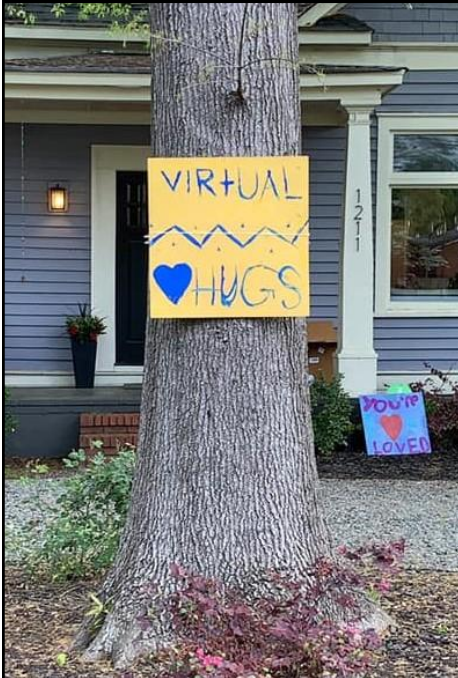 VIRtUAL
HUGS
1211
YOU'RE
LOVED